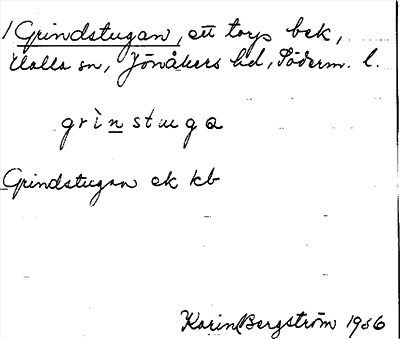 1 Grindstugan, ett torps bek,
Halla sn, Jönåkers hd, Söderm. l.
grìnstuga
Grindstugan ek kb
Karin Bergström 1956